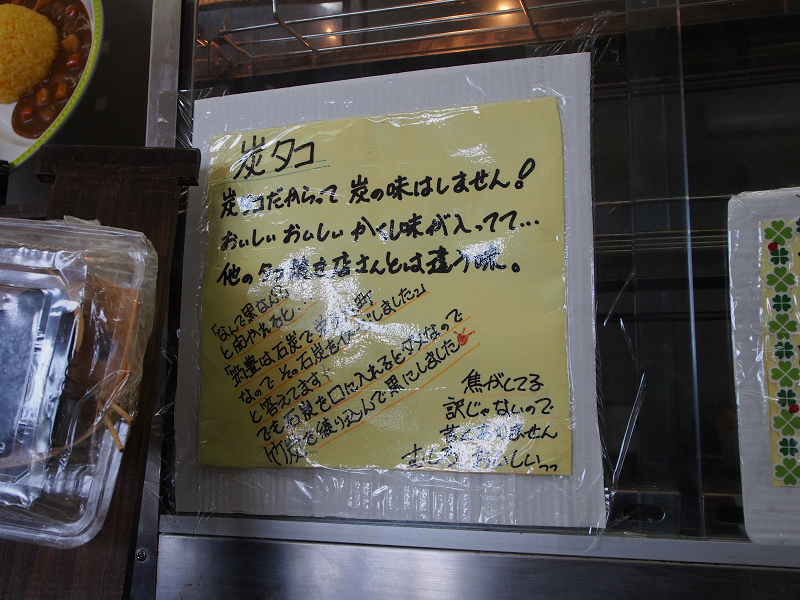 炭タコ
炭タコだからって 炭の味はしません!
おいしいおいしい かくし味が入ってて…
他のタコ焼き店さんとは違う味。
「なんで黒さん?」
と聞かれると…
「筑豊は石炭で 町
なので その石炭を しました」
と答えてます
でも石炭を口に入れるとダメなので
竹炭を練り込んで黒にしました
焦がしてる
訳じゃないので
苦くありません
むしろ おいしいっっ